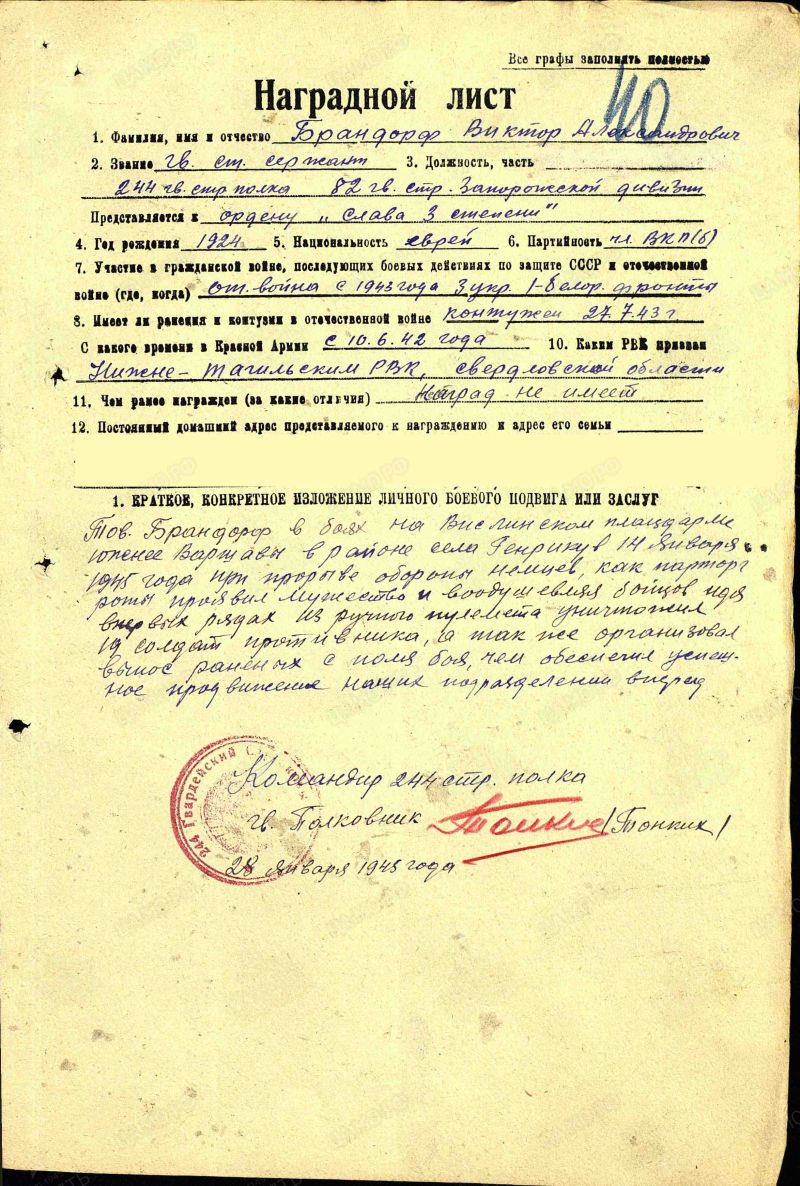 Все графы заполнять полностью
40
Наградной лист
1. Фамилия, имя и отчество Брандорф Виктор Александрович
2. Звание гв. ст. сержант 3. Должность, часть
244 гв. стр полка 82 гв. стр. Запорожской дивизии
Представляется к ордену „Слава 3 степени"
4. Год рождения 1924 5. Национальность еврей 6. Партийность чл. ВКП(б)
7. Участие в гражданской войне, последующих боевых действиях по защите СССР и отечественной
войне (где, когда) от. война с 1943 года 3 укр. 1-белор. фронты
8. Имеет ли ранения и контузии в отечественной войне контужен 27.7.43 г
С какого времени в Красной Армии с 10.6.42 года 10. Каким РВК призван
Нижне-Тагильским РВК, свердловской области
11. Чем ранее награжден (за какие отличия) Наград не имеет
12. Постоянный домашний адрес представляемого к награждению и адрес его семьи
1. КРАТКОЕ, КОНКРЕТНОЕ ИЗЛОЖЕНИЕ ЛИЧНОГО БОЕВОГО ПОДВИГА ИЛИ ЗАСЛУГ
Тов. Брандорф в боях на Вислинском плацдарме
южнее Варшавы в районе села Генрикув 14 января
1945 года при прорыве обороны немцев, как парторг
роты проявил мужество и воодушевляя бойцов идя
в первых рядах из ручного пулемета уничтожил
19 солдат противника, а так же организовал
вынос раненых с поля боя, чем обеспечил успеш-
ное продвижение наших подразделений вперед
Командир 244 стр. полка
гв. Полковник Тонких /Тонких/
28 января 1945 года
244 Гвардейский